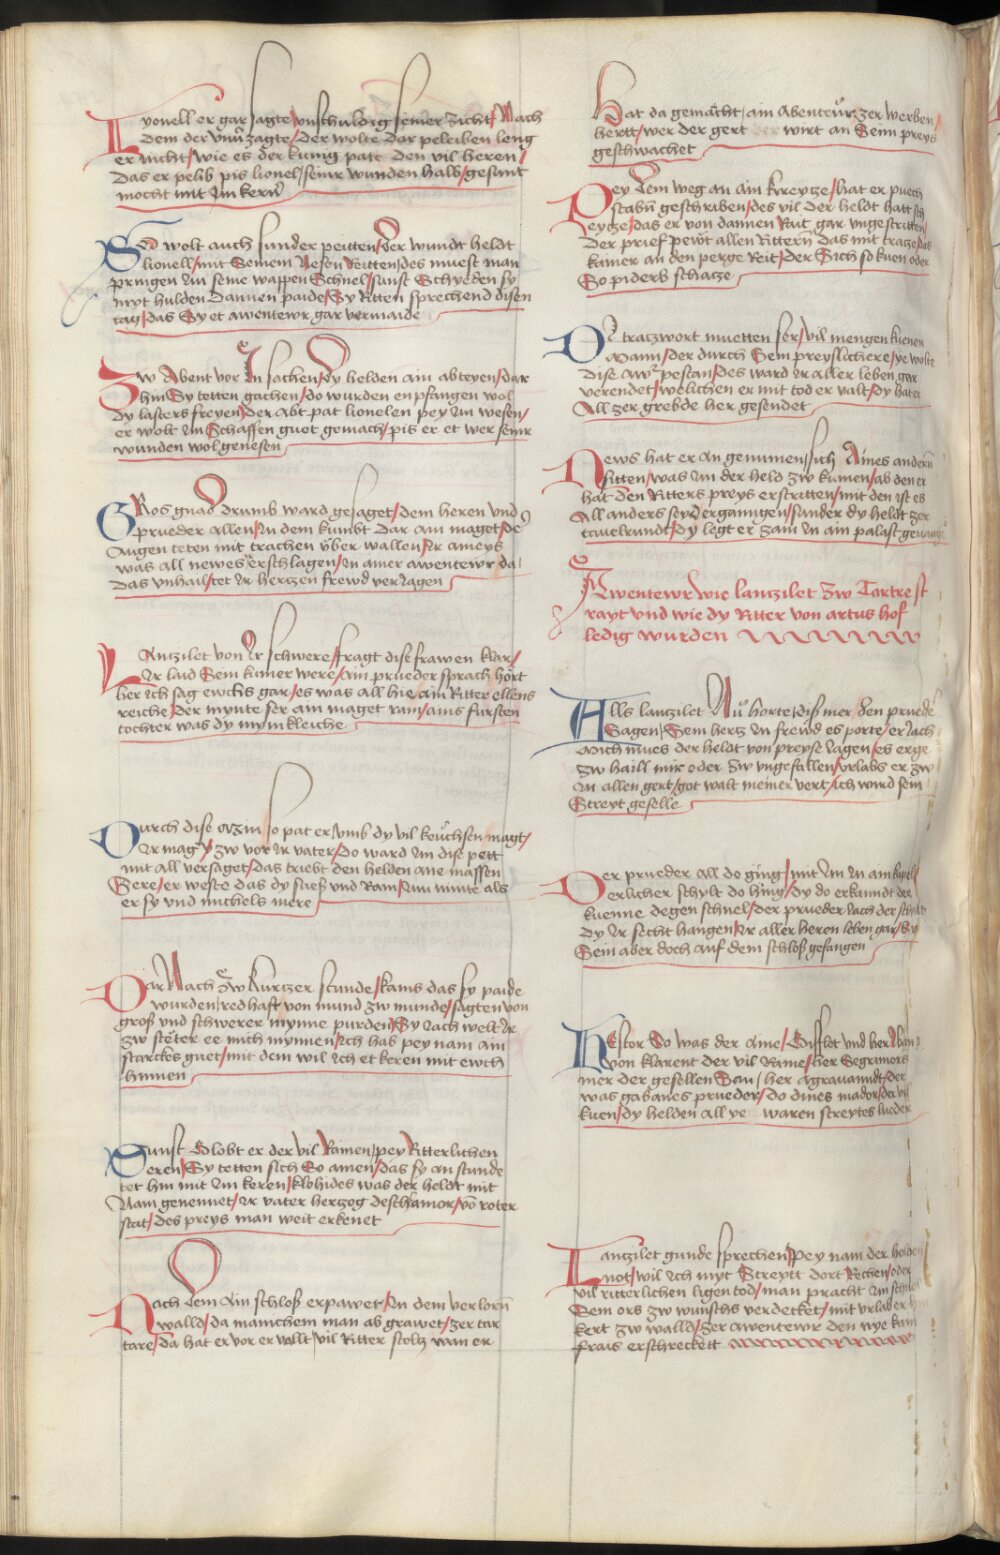 Lyonell er gar sagte / unschuldig seiner zicht / Nach
dem der unuerzagte / der wolte dar peleiben leng
er nicht / wie es der kunig pate den vil heren /
Das er pelib pis lionel / seinr wunden halb / gesunt
mocht mit Im kern
Ed wolt auch sunder peitten / Der wundt heldt
lionell / mit Seinem Nefen Reitten / des muest man
pringen Im seine wappen Schnel / sunst Schyeden sy
myt hulden Dannen paide / Sy Ritten sprechend disen
tag / das Sy et awentewr gar vermaide
Zw Abent vor In sachen / Dy helden ain abteyen / dar
hin Sy tetten gachen / do wurden enpfangen wol
dy lasters freyen / Der Abt pat lionelen pey Im wesen /
er wolt Im Schaffen guet gemach / pis er et wer seinr
wunden wol genesen
GRos gnad drumb ward gesaget / dem heren vnd
prueder allen / In dem kumbt dar ain maget / der
Augen teten mit trachen über wallen / Ir ameys
was all newes erschlagen / In ainer awentewr da
Das vnhail / tet Ir hertzen frewd veriagen
LAnzilet von Ir schwere / fragt dise frawen klar /
Ir laid Sein kumer were / Ain prueder sprach hört
her ich sag ewchs gar / es was all hie ain Ritter ellens
reiche / Der mynte ser ain maget rain / ains fursten
tochter was dy mynikleiche
Durch dise / so pat er vmb dy vil keuschen magt /
Ir mag zw vor Ir vater / Do ward Im dise pett
mit all versaget / das triebt den helden ane massen
Sere / er weste das dy suess vnd Rain / Im minte als
er sy vnd michels mere
Dar Nach zw kurtzer stunde / kams das sy paide
wurden / redhaft von mund zw munde / sagten von
groß vnd schwerer mynne purden / Sy iach welt Ir
zw steter ee mich mynnen / ich hab pey nam ain
starckes guet / mit dem wil ich et keren mit ewch
hinnen
Sunst Globt er der vil Rainen / pey Ritterlichen
eren / Sy tetten sich So ainen / das sy an stunde
tet hin mit Im keren / klohides was der heldt mit
Nam genennet / Ir vater hertzog deschamor / võ roter
stat / des preys man weit erkenet
Nach Dem Ain schloß erpawet / In dem verlorñ
walld / da manichem man ab grawet / zer tar
tare / Da hat er vor er vellt / vil Ritter stoltz wan er
Hat da gemacht / ain Abenteür zer werben /
hertt / wer der gert der wirt an Seim preys
geschwachet
Pey Dem weg an ain kreytze / hat er puech
stabñ geschriben / des vil der heldt hatt sch
eytze / das er von dannen Rait gar vngestritten /
Der prief pewt allen Ritterñ Das mit tratze / das
kainer an den perge Reit / Der Sich so kuen oder
So piderb schatze
DI tratzwort muetten ser / vil mengen kienen
Mann / der durch Sein preyslichere / ye wolte
dise aw pestan / des ward Ir aller leben gar
verendet / welichen er mit tod er valt / Dy hat er
All zer grebde her gesendet
News hat er an genumen / sich Aines andern
sitten / was Im der held zw kumen / ab den er
hat den Ritters preys erstritten / mit den ist es
All anders seyd ergangen / sunder dy heldt zer
tauelrundt / Dy legt er zam In ain palast
Awentewr wie lantzilet zw Tartre st
rayt vnd wie dy Ritter von artus hof
ledig wurden
Alls lantzilet Nu horte / diß mer den pruede
Sagen / Sein hertz In frewd es porte / er iach
mich mues der heldt von preyse lagen / es erge
zw haill mir oder zw vngefallen / vrlabs er zw
In allen gert / got walt meiner vert / ich wird sein
Streyt geselle
Der prueder all do ging / mit Im In ain
erlicher schylt do hing / dy do erkanndt der
kuenne degen schnel / der prueder iach der schylt
dy Ir secht hangen / Ir aller heren leben gar / Sy
Sein aber doch auf dem schloß gefangen
HEctor So was der aine / Gifflet vnd her
von klarent der vil Raine / her Segrimors
mer der gesellen San / her Agrauanndt / der
was gabanes prueder / do dines mador / der vil
kuen / dy helden all ye waren streytes lueder
Lantzilet gunde sprechen / Pey nam der helden
not / wil ich myt Streytt dort Rechen / oder
vil ritterlichen ligen tod / man pracht Im schnel
Sein ors zw wunschs verdecket / mit vrlab er
kert zw walld / zer awentewr den nye kain
frais erschreckett